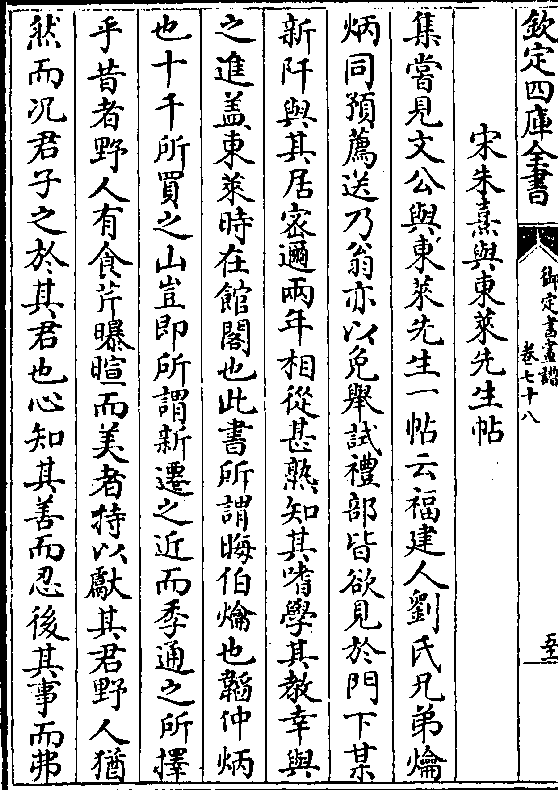 欽定四庫全書
御定書畫譜
卷七十八
宋朱熹與東萊先生帖
集嘗見文公與東萊先生一帖云福建人劉氏兄弟爚
炳同預薦送乃翁亦以免舉試禮部皆欲見於門下某
新阡與其居密邇兩年相從甚熟知其嗜學其教幸與
之進蓋東萊時在館閣也此書所謂晦伯爚也韜仲炳
也十千所買之山豈即所謂新遷之近而季通之所擇
乎昔者野人有食芹曝暄而美者持以獻其君野人猶
然而况君子之於其君也心知其善而忍後其事而弗